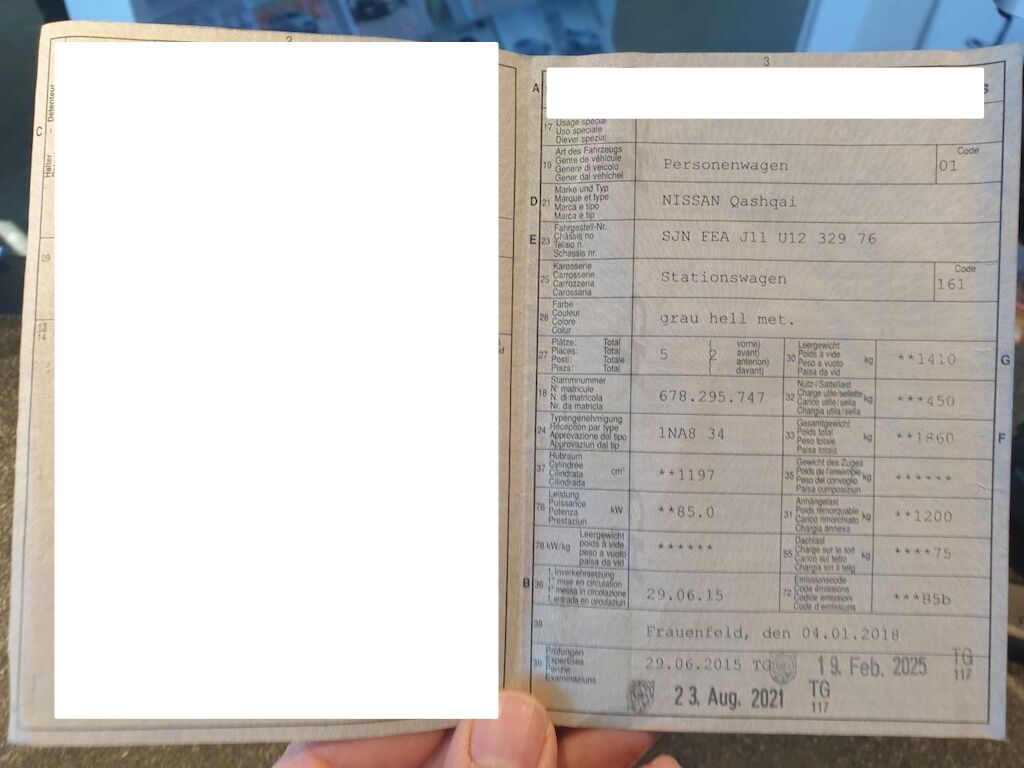 2
3
C
Détenteur
Halter
09
13
14
A
S
17
Usage spécial
Uso speciale
Diever spezial
19
Art des Fahrzeugs
Genre de véhicule
Genere di veicolo
Gener dal vehichel
Personenwagen
Code
01
D 21
Marke und Typ
Marque et type
Marca e tipo
Marca e tip
NISSAN Qashqai
E 23
Fahrgestell-Nr.
Châssis no
Telaio n.
Schassis nr.
SJN FEA J11 U12 329 76
25
Karosserie
Carrosserie
Carrozzeria
Carossaria
Stationswagen
Code
161
26
Farbe
Couleur
Colore
Colur
grau hell met.
27
Plätze: Total
Places: Total
Posti: Totale
Plazs: Total
5
( vorne)
2 avant)
anteriori)
davant)
30
Leergewicht
Poids à vide
Peso a vuoto
Paisa da vid
kg
**1410
G
18
Stammnummer
N° matricule
N. di matricola
Nr. da matricla
678.295.747
32
Nutz-/Sattellast
Charge utile/sellette
Carico utile/sella
Chargia utila/sella
kg
***450
24
Typengenehmigung
Réception par type
Approvazione del tipo
Approvaziun dal tip
1NA8 34
33
Gesamtgewicht
Poids total
Peso totale
Paisa totala
kg
**1860
F
37
Hubraum
Cylindrée
Cilindrata
Cilindrada
cm³
**1197
35
Gewicht des Zuges
Poids de l'ensemble
Peso del convoglio
Paisa cumposiziun
kg
******
76
Leistung
Puissance
Potenza
Prestaziun
kW
**85.0
31
Anhängelast
Poids remorquable
Carico rimorchiato
Chargia annexa
kg
**1200
78 kW/kg
Leergewicht
poids à vide
peso a vuoto
paisa da vid
******
55
Dachlast
Charge sur le toit
Carico sul tetto
Chargia sin il tetg
kg
****75
B 36
1. Inverkehrsetzung
1re mise en circulation
1a messa in circolazione
1. entrada en circulaziun
29.06.15
72
Emissionscode
Code émissions
Codice emissioni
Code d'emissiuns
***B5b
38
Frauenfeld, den 04.01.2018
39
Prüfungen
Expertises
Perizie
Examinaziuns
29.06.2015 TG
19. Feb. 2025
TG
117
23. Aug. 2021
TG
117